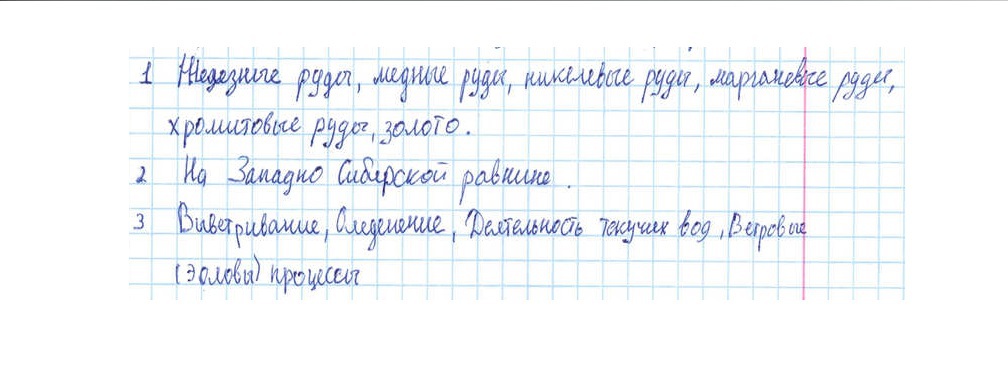 1 Железные руды, медные руды, никелевые руды, марганевые руды,
хромитовые руды, золото.
2 На Западно Сибирской равнине.
3 Выветривание, Оледенение, Деятельность текучих вод, Ветровые
(эоловы) процессы